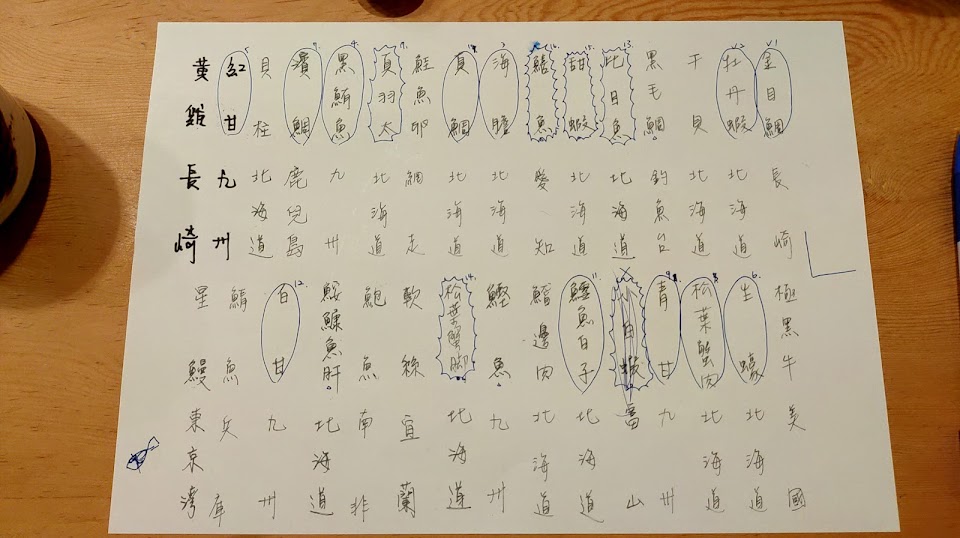 金目鯛 長崎
牡丹蝦 北海道
干貝 北海道
黑毛鯛 釣魚台
13. 比目魚 北海道
15. 甜蝦 北海道
16. 魚 愛知
3. 海膽 北海道
真鯛 北海道
鮭魚卵 網走
真羽太 北海道
4. 黑鮪魚 九州
濱鯛 鹿兒島
貝柱 北海道
5. 紅甘 九州
黃雞 長崎
極黑牛 美國
6. 生蠔 北海道
8. 松葉蟹肉 北海道
青甘 九州
白蝦 富山
11. 鱈魚白子 北海道
鰭邊肉 北海道
鰹魚 九州
14. 松葉蟹腳 北海道
軟絲 宜蘭
鮑魚 南非
鮟鱇魚肝 北海道
12. 白甘 九州
鯖魚 兵庫
星鰻 東京灣